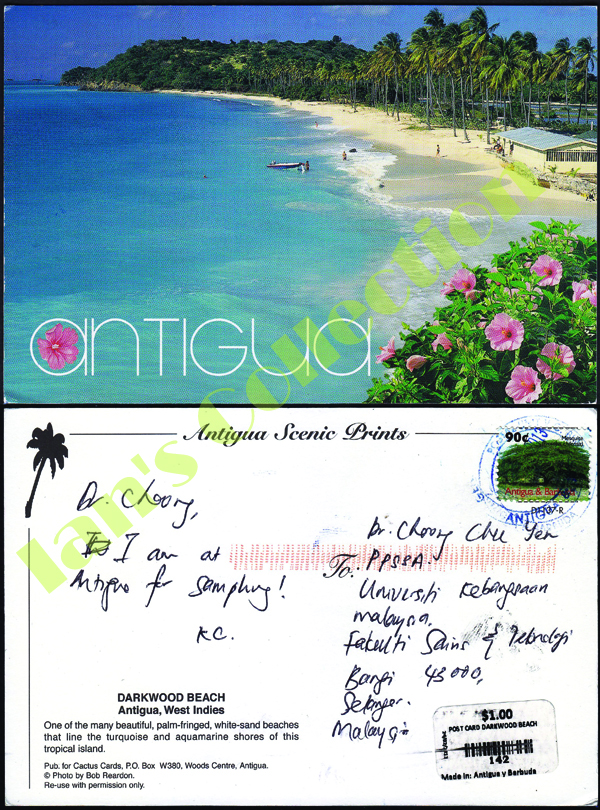 anTIGUa
Ian's Collection
Antigua Scenic Prints
90¢
Mesquite
Antigua & Barbuda
ANTIGUA
Dr. Choong,
I am at
Antigua for Sampling!
K.C.
Dr. Choong Chee Yen
To: PPSSA.
Universiti Kebangsaan
Malaysia.
Fakulti Sains & Teknologi
Bangi 43000,
Selangor.
Malaysia
DARKWOOD BEACH
Antigua, West Indies
One of the many beautiful, palm-fringed, white-sand beaches
that line the turquoise and aquamarine shores of this
tropical island.
Pub. for Cactus Cards, P.O. Box W380, Woods Centre, Antigua.
© Photo by Bob Reardon.
Re-use with permission only.
$1.00
POST CARD DARKWOOD BEACH
142
Made in: Antigua y Barbuda